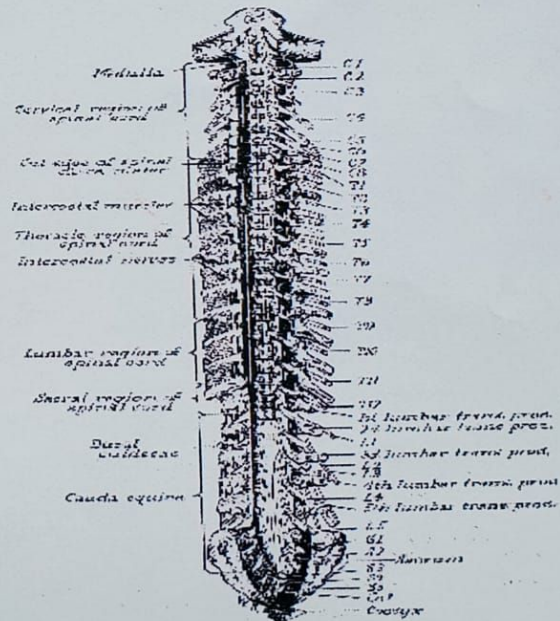 Medulla
Cervical region of
spinal cord
Cut edge of spinal
dura mater
Intercostal muscles
Thoracic region of
spinal cord
Intercostal nerves
Lumbar region of
spinal cord
Sacral region of
spinal cord
Dural
Cauda equina
C1
C2
C3
C4
C5
C6
C7
C8
T1
T2
T3
T4
T5
T6
T7
T8
T9
T10
T11
T12
1st lumbar trans. proc.
lumbar trans. proc.
L1
3d lumbar trans. proc.
L2
L3
4th lumbar trans. proc.
L4
5th lumbar trans. proc.
L5
S1
S2
S3
S4
S5
Coccyx